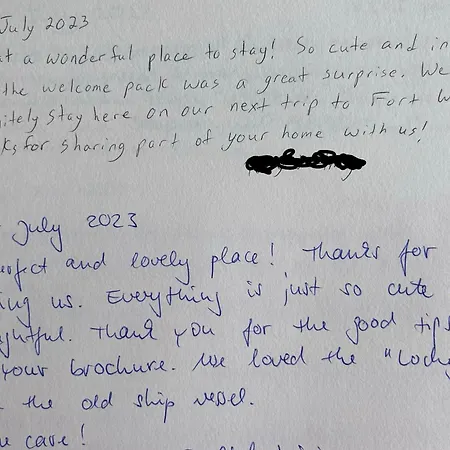 July 2023
at a wonderful place to stay! So cute and in
the welcome pack was a great surprise. We
itely stay here on our next trip to Fort W
ks for sharing part of your home with us!
July 2023
erfect and lovely place! Thanks for
ing us. Everything is just so cute
ghtful. Thank you for the good tips
your brochure. We loved the "Loch
the old ship vessel.
e care!